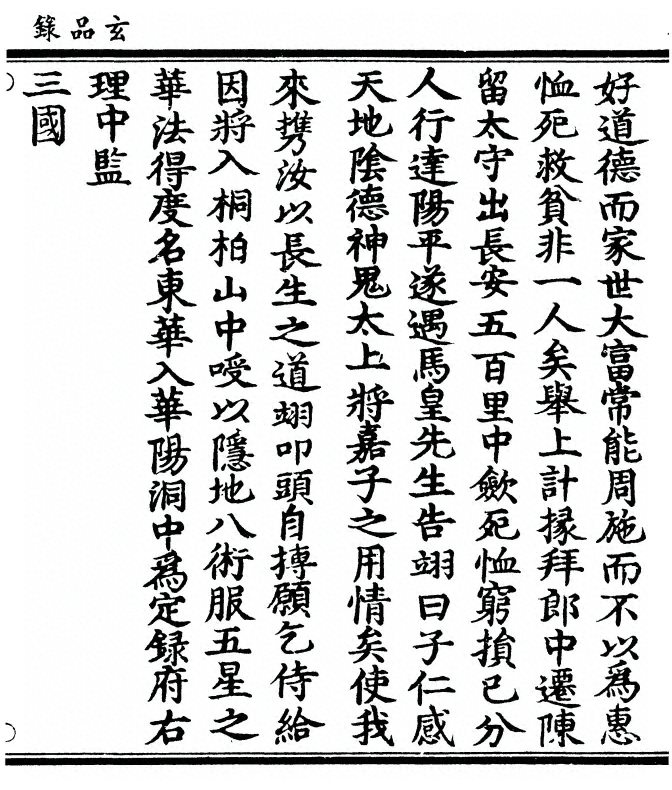 玄品錄
好道德而家世大富常能周施而不以爲惠
恤死救貧非一人矣舉上計掾拜郎中遷陳
留太守出長安五百里中斂死恤窮損已分
人行達陽平遂遇馬皇先生告翊曰子仁感
天地陰德神鬼太上將嘉子之用情矣使我
來攜汝以長生之道翊叩頭自搏願乞侍給
因將入桐柏山中唼以隱地八術服五星之
華法得度名東華入華陽洞中爲定録府右
理中監
三國